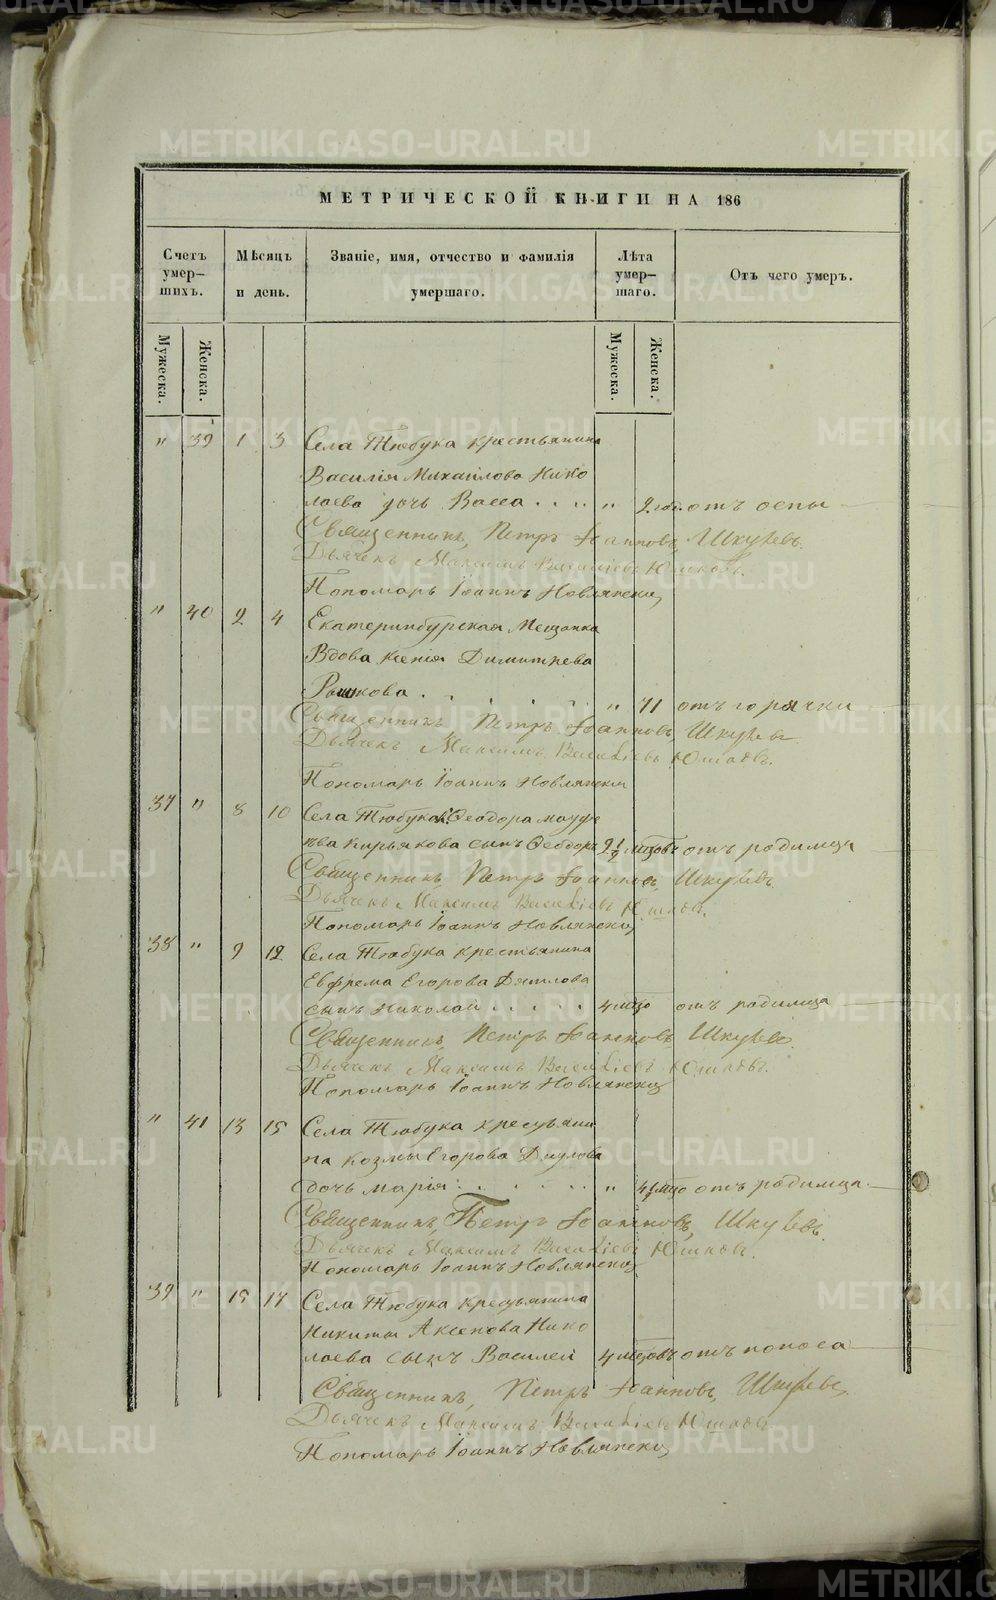 МЕТРИЧЕСКОЙ КНИГИ НА 186
Счетъ умер— шихъ.
Мѣсяцъ и день.
Званіе, имя, отчество и фамилія умершаго.
Лѣта умер— шаго.
Отъ чего умеръ.
Мужеска.
Женска.
Мужеска.
Женска.
" 39 1 3 Села Тюбука крестьянина
Василія Михайлова Нико
лаева дочь Васса . . . . " 2 год. отъ оспы
Священникъ, Петръ Іоанновъ, Шкулевъ.
Дьячекъ Максимъ Васильевъ Юшковъ.
Пономарь Іоаннъ Новлянскій
" 40 2 4 Екатеринбурская Мещанка
Вдова Ксенія Димитрева
Рышкова . . . . . . " 71 отъ горячки
Священникъ, Петръ Іоанновъ, Шкулевъ
Дьячекъ Максимъ Васильевъ Юшковъ.
Пономарь Іоаннъ Новлянскій
37 " 8 10 Села Тюбука Ѳеодора
Кирьякова сынъ Ѳеодоръ 2 1/2 мцовъ отъ родимца
Священникъ, Петръ Іоанновъ, Шкулевъ.
Дьячекъ Максимъ Васильевъ Юшковъ.
Пономарь Іоаннъ Новлянскій
38 " 9 12 Села Тюбука крестьянина
Евфрема Егорова Дятлова
сынъ Николай . . . . . 4 мцо отъ родимца
Священникъ, Петръ Іоанновъ, Шкулевъ.
Дьячекъ Максимъ Васильевъ Юшковъ.
Пономарь Іоаннъ Новлянскій
" 41 13 15 Села Тюбука крестьяни
на Козмы Егорова
дочь Марія . . . . . . " 4 1/2 мцо отъ родимца.
Священникъ, Петръ Іоанновъ, Шкулевъ.
Дьячекъ Максимъ Васильевъ Юшковъ.
Пономарь Іоаннъ Новлянскій
39 " 15 17 Села Тюбука крестьянина
Никиты Аксенова Нико
лаева сынъ Василей 4 мцовъ отъ поноса
Священникъ, Петръ Іоанновъ, Шкулевъ,
Дьячекъ Максимъ Васильевъ Юшковъ
Пономарь Іоаннъ Новлянскій
METRIKI.GASO-URAL.RU